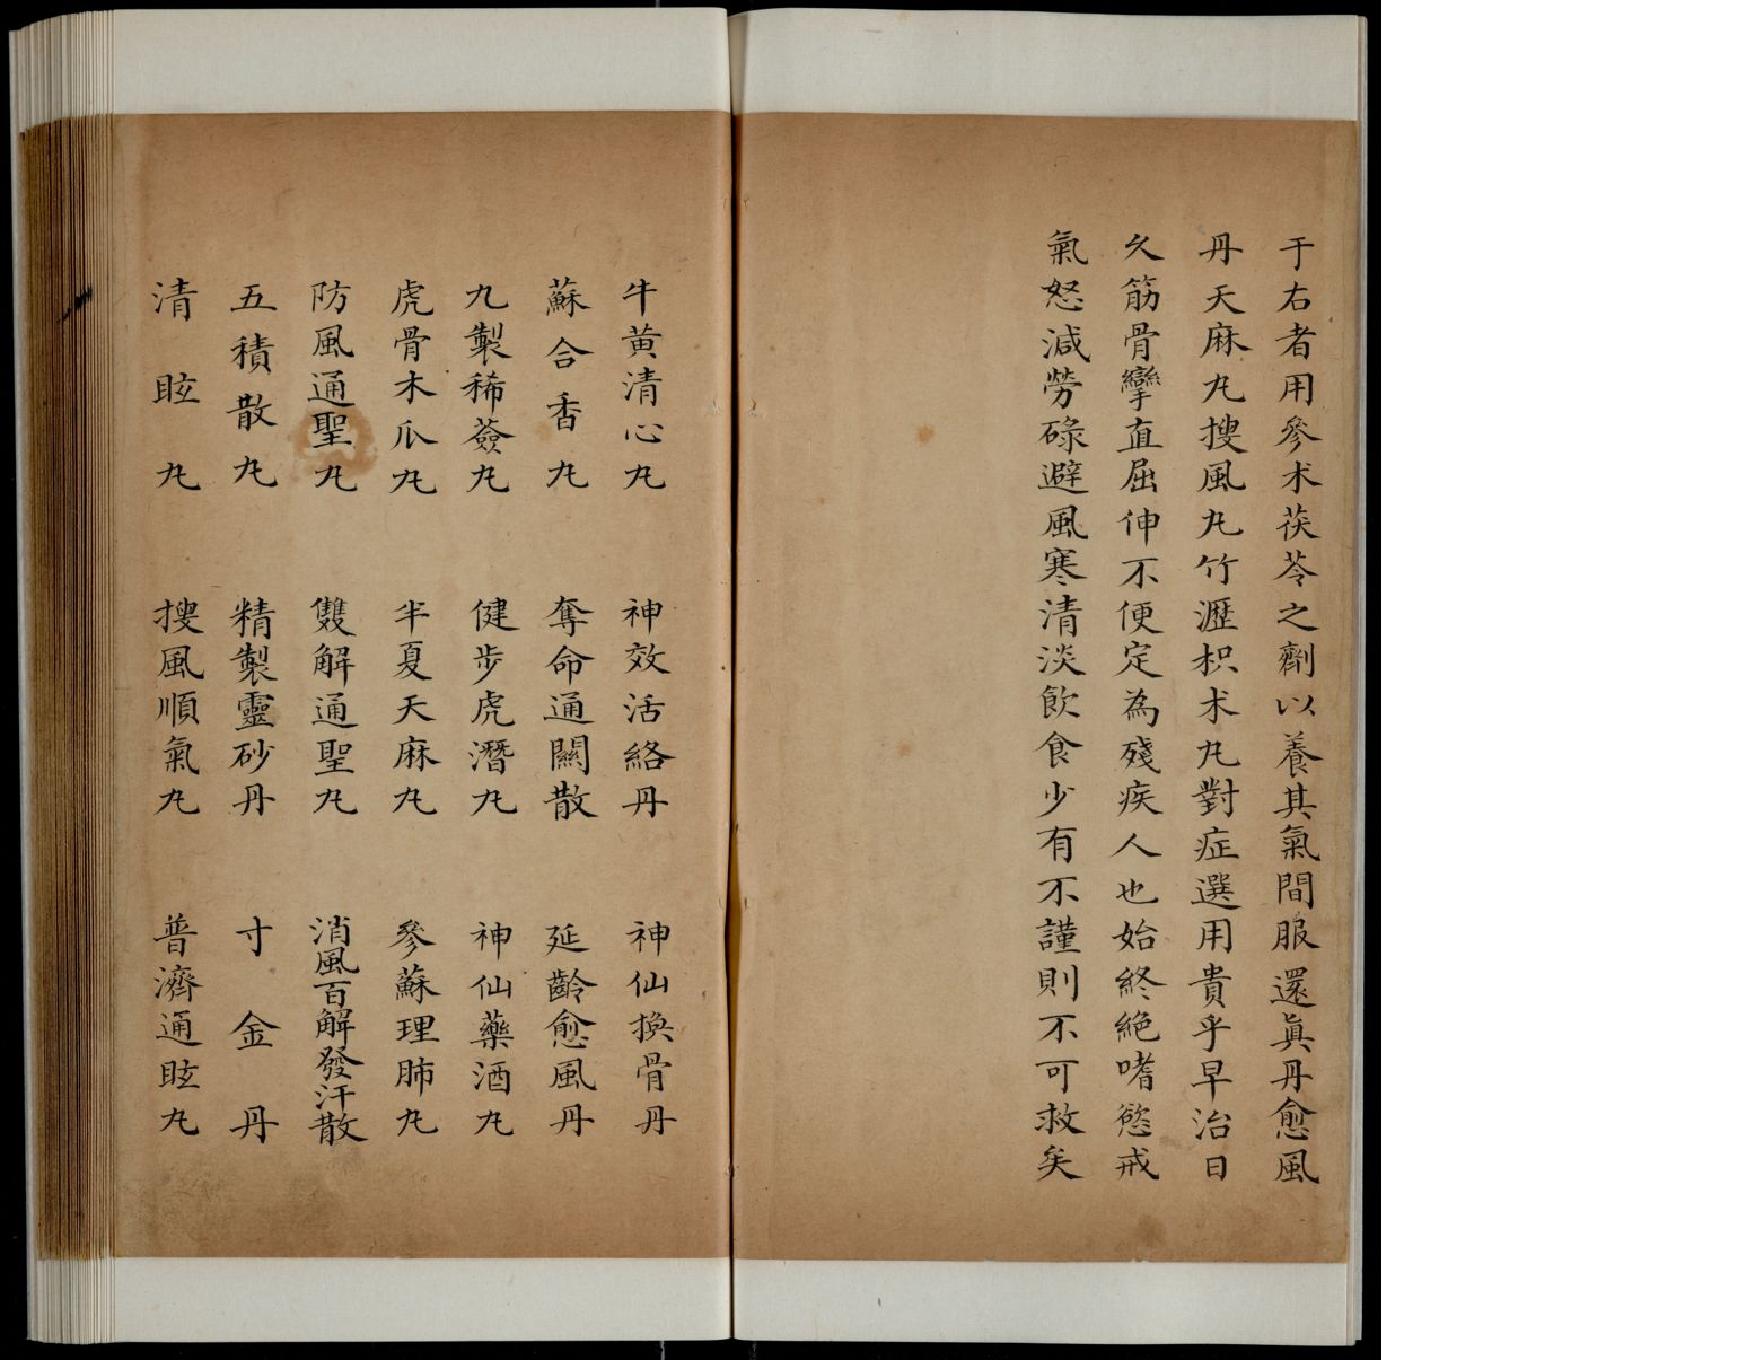 于右者用參术茯苓之劑以養其氣間服還眞丹愈風
丹天麻丸搜風丸竹瀝枳术丸對症選用貴乎早治日
久筋骨攣直屈伸不便定為殘疾人也始終絶嗜慾戒
氣怒減勞碌避風寒清淡飲食少有不謹則不可救矣
牛黃清心丸 神效活絡丹 神仙換骨丹
蘇合香丸 奪命通關散 延齡愈風丹
九製稀薟丸 健步虎潛丸 神仙藥酒丸
虎骨木瓜丸 半夏天麻丸 參蘇理肺丸
防風通聖丸 雙解通聖丸 消風百解發汗散
五積散丸 精製靈砂丹 寸金丹
清眩丸 搜風順氣丸 普濟通眩丸